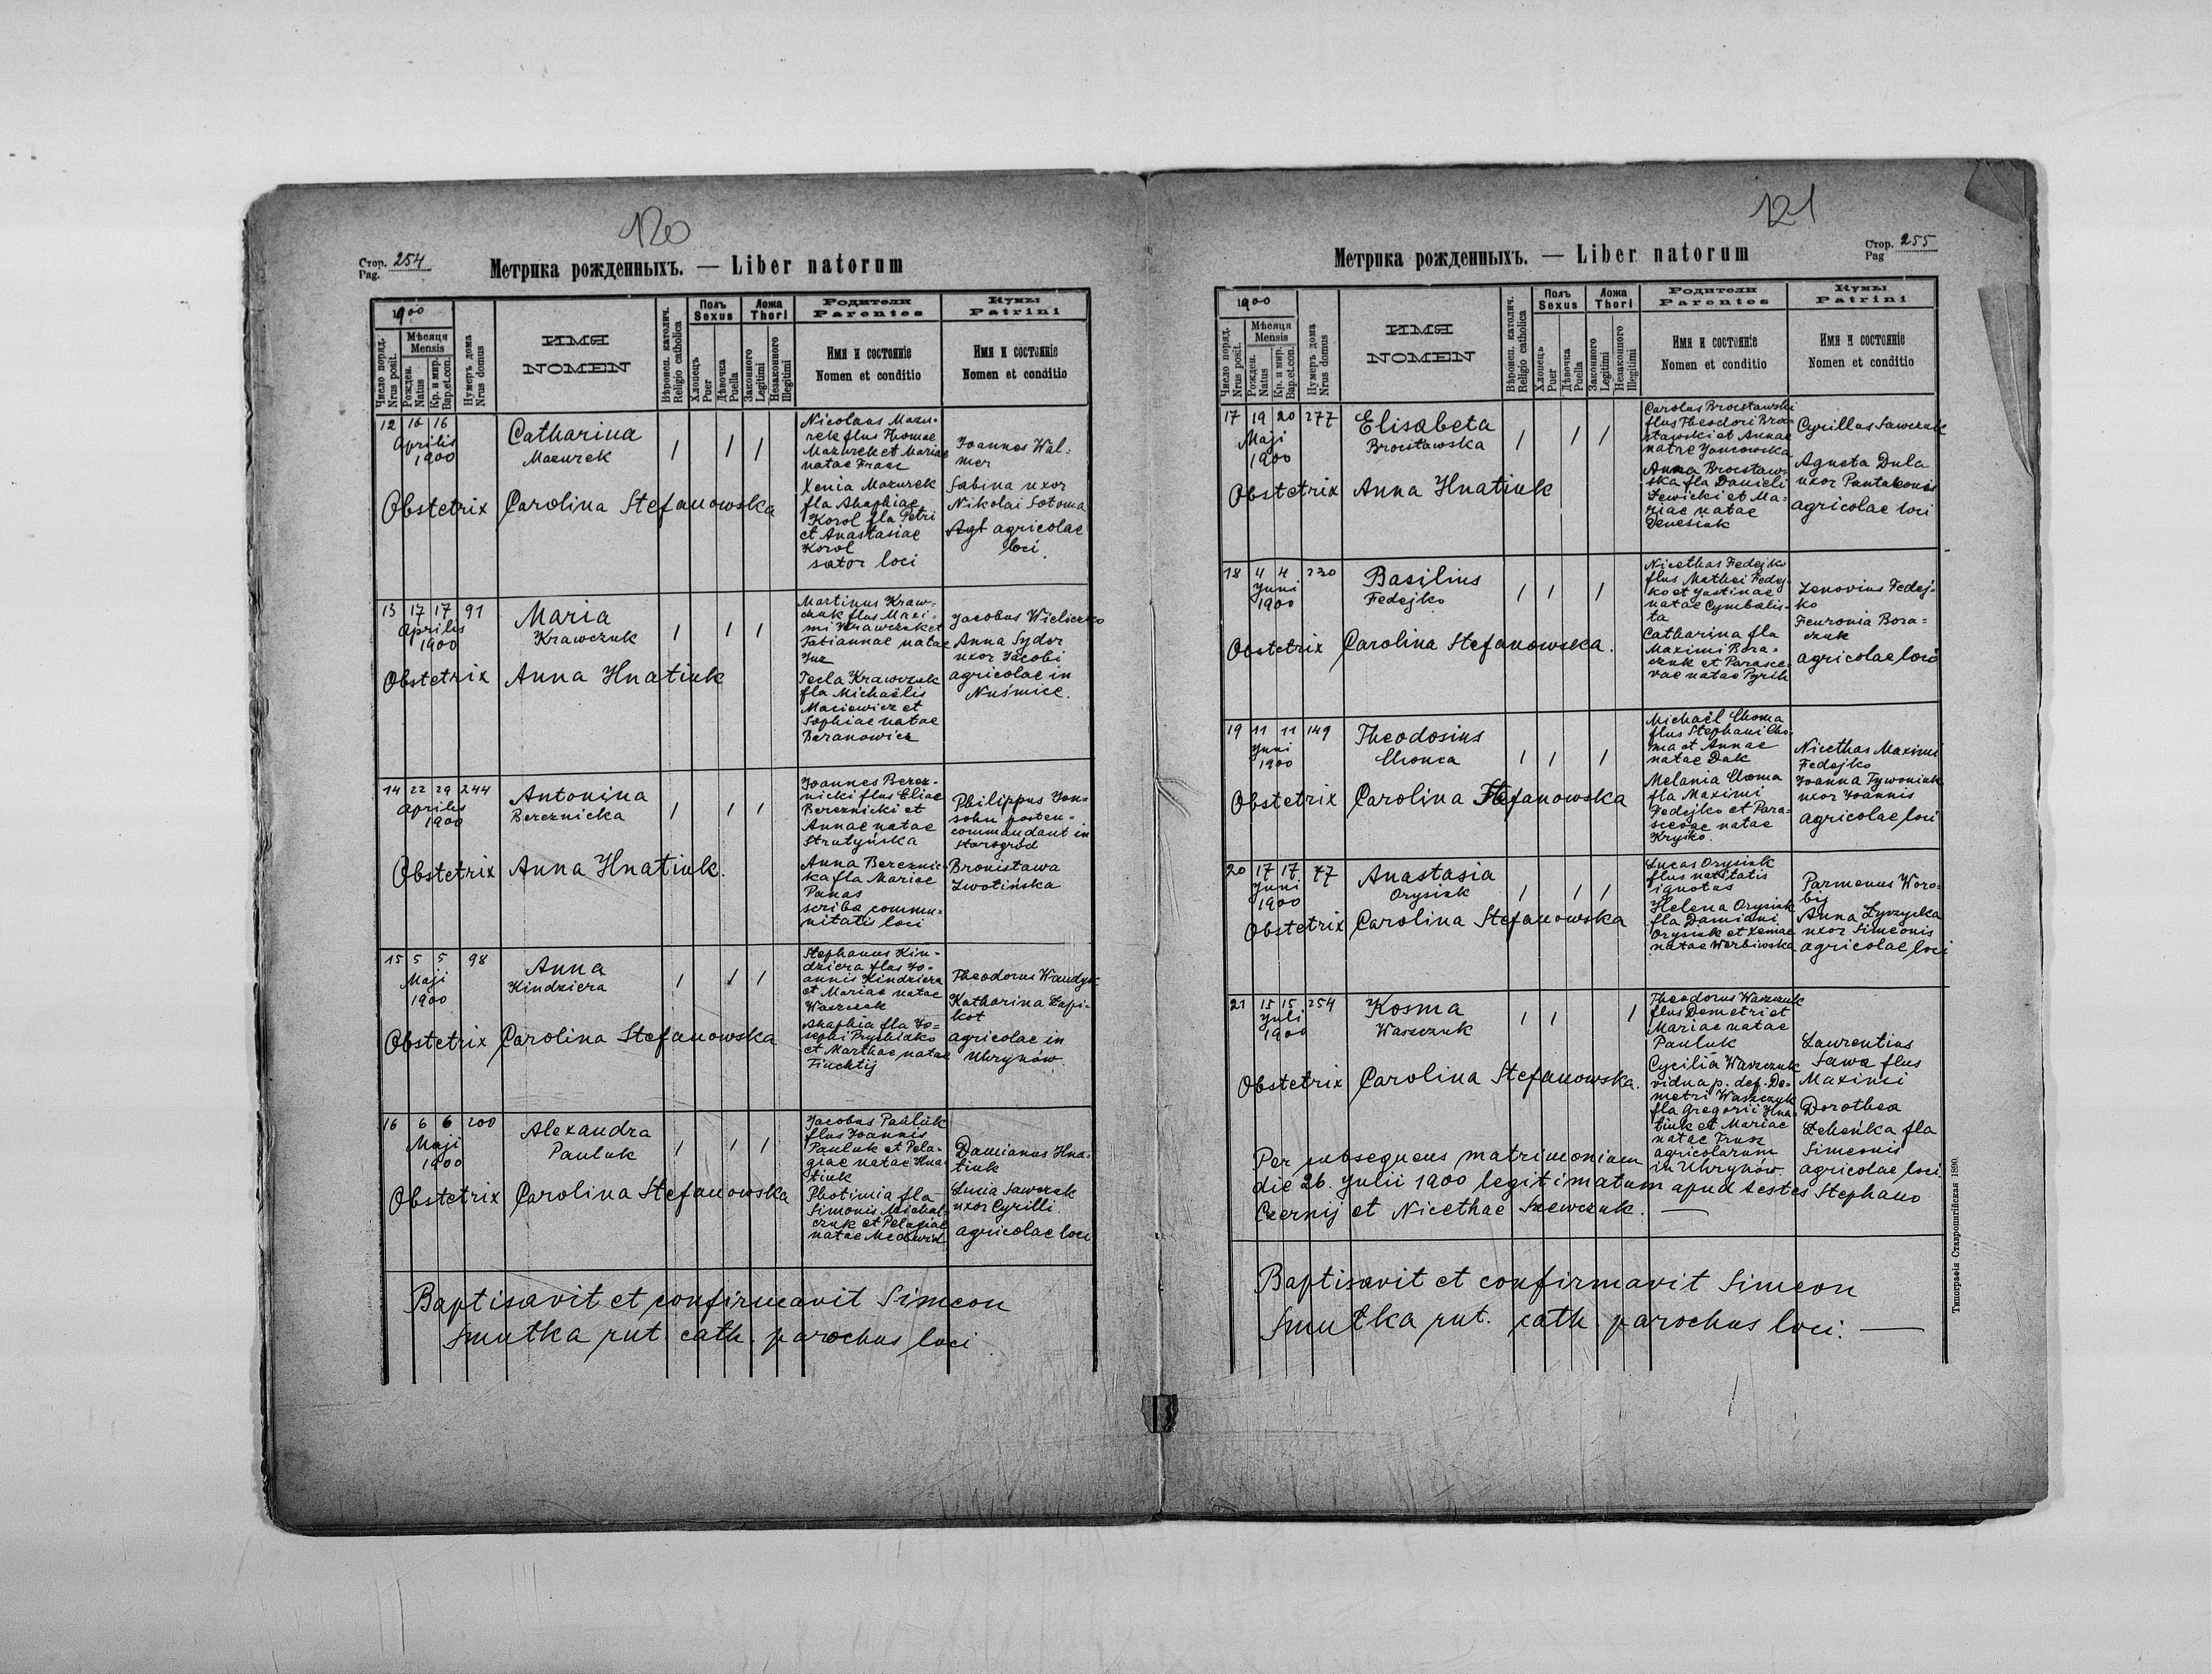 120
Стор. 254
Pag.
Метрика рожденныхъ. — Liber natorum
1900
Число поряд.
Nrus posit.
Мѣсяця
Mensis
Рожден.
Natus
Кр. и мир.
Bap. et con.
Нумеръ дома
Nrus domus
ИМЯ
NOMEN
Вѣроисп. католич.
Religio catholica
Полъ
Sexus
Хлопець
Puer
Дѣвочка
Puella
Ложа
Thori
Законного
Legitimi
Незаконного
Illegitimi
Родители
Parentes
Имя и состоянiе
Nomen et conditio
Кумы
Patrini
Имя и состоянiе
Nomen et conditio
12 16 16
Aprilis
1900
Catharina
Mazurek
Obstetrix Carolina Stefanowska
Nicolaus Mazu-
rek flus Thomae
Mazurek et Mariae
natae Frasz
Xenia Mazurek
fla Ahaphiae
Korol fla Petri
et Anastasiae
Korol
sator loci
Joannes Wal-
mer
Sabina uxor
Nikolai Sotoma
agricolae
loci.
13 17 17 91
Aprilis
1900
Maria
Krawczuk
Obstetrix Anna Hnatiuk
Martinus Kraw-
czuk flus Maxi-
mi Krawczuk et
Tatiannae natae
Juz
Tecla Krawczuk
fla Michaëlis
Maciewicz et
Sophiae natae
Baranowicz
Jacobus Wieliczko
Anna Sydor
uxor Jacobi
agricolae in
Nuśmice.
14 22 29 244
Aprilis
1900
Antonina
Bereznicka
Obstetrix Anna Hnatiuk.
Joannes Berez-
nicki flus Eliae
Bereznicki et
Annae natae
Strutyńska
Anna Bereznic-
ka fla Mariae
Panas
scriba commu-
nitatis loci
Philippus Jon-
sohn posten-
commandant in
Starogród
Bronisława
Zwolińska
15 5 5 98
Maji
1900
Anna
Kindziera
Obstetrix Carolina Stefanowska
Stephanus Kin-
dziera flus Jo-
annis Kindziera
et Mariae natae
Waszczuk
Ahaphia fla Jo-
sephi Prychidko
et Marthae natae
Tluchtij
Theodorus Wandy
Katharina Łapi-
kot
agricolae in
Uhrynów
16 6 6 200
Maji
1900
Alexandra
Pauluk
Obstetrix Carolina Stefanowska
Jacobus Pauluk
flus Joannis
Pauluk et Pela-
giae natae Hna-
tiuk
Photimia fla
Simonis Michal-
czuk et Pelagiae
natae Medwid
Damianus Hna-
tiuk
Lucia Sawczuk
uxor Cyrilli
agricolae loci
Baptisavit et confirmavit Simeon
Smutka rut. cath. parochus loci.
121
Стор. 255
Pag
Метрика рожденныхъ. — Liber natorum
1900
Число поряд.
Nrus posit.
Мѣсяця
Mensis
Рожден.
Natus
Кр. и мир.
Bap. et con.
Нумеръ дома
Nrus domus
ИМЯ
NOMEN
Вѣроисп. католич.
Religio catholica
Полъ
Sexus
Хлопець
Puer
Дѣвочка
Puella
Ложа
Thori
Законного
Legitimi
Незаконного
Illegitimi
Родители
Parentes
Имя и состоянiе
Nomen et conditio
Кумы
Patrini
Имя и состоянiе
Nomen et conditio
17 19 20 277
Maji
1900
Elisabeta
Brocsławska
Obstetrix Anna Hnatiuk
Carolus Brocsławski
flus Theodori Broc-
sławski et Annae
natae Jancowska
Anna Brocsław-
ska fla Danieli
Lewicki et Ma-
riae natae
Denesiuk
Cyrillus Sawczuk
Agneta Dula
uxor Pantaleonis
agricolae loci
18 4 4 230
Juni
1900
Basilius
Fedejko
Obstetrix Carolina Stefanowska.
Nicethas Fedejko
flus Mathei Fedej-
ko et Justinae
natae Cymbalis-
ta
Catharina fla
Maximi Bora-
czuk et Parasce-
vae natae Pyrih
Zenovius Fedej-
ko
Feuronia Bora-
czuk
agricolae loci
19 11 11 149
Juni
1900
Theodosius
Choma
Obstetrix Carolina Stefanowska
Michaël Choma
flus Stephani Cho-
ma et Annae
natae Dak
Melania Choma
fla Maximi
Fedejko et Para-
scevae natae
Kryśko.
Nicethas Maximi
Fedejko
Joanna Tywoniuk
uxor Joannis
agricolae loci
20 17 17 77
Juni
1900
Anastasia
Orysiuk
Obstetrix Carolina Stefanowska
Lucas Orysiuk
flus natitatis
ignotus
Helena Orysiuk
fla Damiani
Orysiuk et Xeniae
natae Werbiwska
Parmenus Woro-
bij
Anna Łyszycka
uxor Simeonis
agricolae loci
21 15 15 254
Juli
1900
Kosma
Waszczuk
Obstetrix Carolina Stefanowska.
Theodorus Waszczuk
flus Demetri et
Mariae natae
Pauluk
Cycilia Waszczuk
vidua p. def. De-
metri Waszczyk
fla Gregorii Hna-
tiuk et Mariae
natae Frusz
agricolarum
in Uhrynów.
Laurentius
Sawa flus
Maximi
Dorothea
Leheńka fla
Simeonis
agricolae loci.
Per subsequens matrimonium
die 26. Julii 1900 legitimatum apud testes Stephano
Czernij et Nicethae Szewczuk. —
Baptisavit et confirmavit Simeon
Smutka rut. cath. parochus loci. —
Типографiя Ставропигiйская 1890.